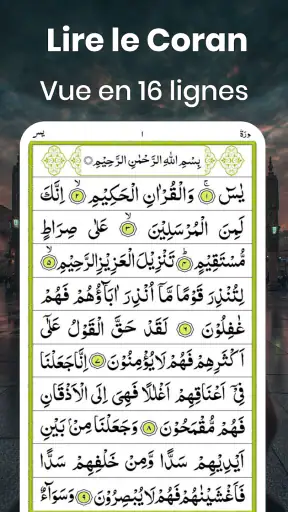 Lire le Coran
Vue en 16 lignes
يٰسٓ ١ سورة
بِسْمِ اللّٰهِ الرَّحْمٰنِ الرَّحِيْمِ
يٰسٓ ۝١ وَالْقُرْاٰنِ الْحَكِيْمِ ۝٢ اِنَّكَ
لَمِنَ الْمُرْسَلِيْنَ ۝٣ عَلٰى صِرَاطٍ
مُّسْتَقِيْمٍ ۝٤ تَنْزِيْلَ الْعَزِيْزِ الرَّحِيْمِ ۝٥
لِتُنْذِرَ قَوْمًا مَّاۤ اُنْذِرَ اٰبَآؤُهُمْ فَهُمْ
غٰفِلُوْنَ ۝٦ لَقَدْ حَقَّ الْقَوْلُ عَلٰۤى
اَكْثَرِهِمْ فَهُمْ لَا يُؤْمِنُوْنَ ۝٧ اِنَّا جَعَلْنَا
فِيْۤ اَعْنَاقِهِمْ اَغْلٰلًا فَهِىَ اِلَى الْاَذْقَانِ
فَهُمْ مُّقْمَحُوْنَ ۝٨ وَجَعَلْنَا مِنْۢ بَيْنِ
اَيْدِيْهِمْ سَدًّا وَّمِنْ خَلْفِهِمْ سَدًّا
فَاَغْشَيْنٰهُمْ فَهُمْ لَا يُبْصِرُوْنَ ۝٩ وَسَوَآءٌ